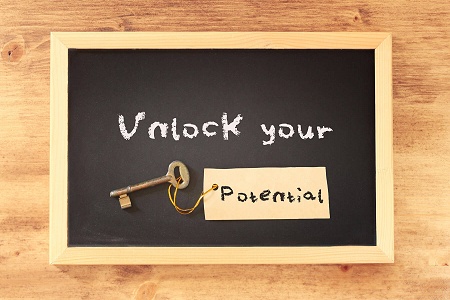 Unlock your
Potential